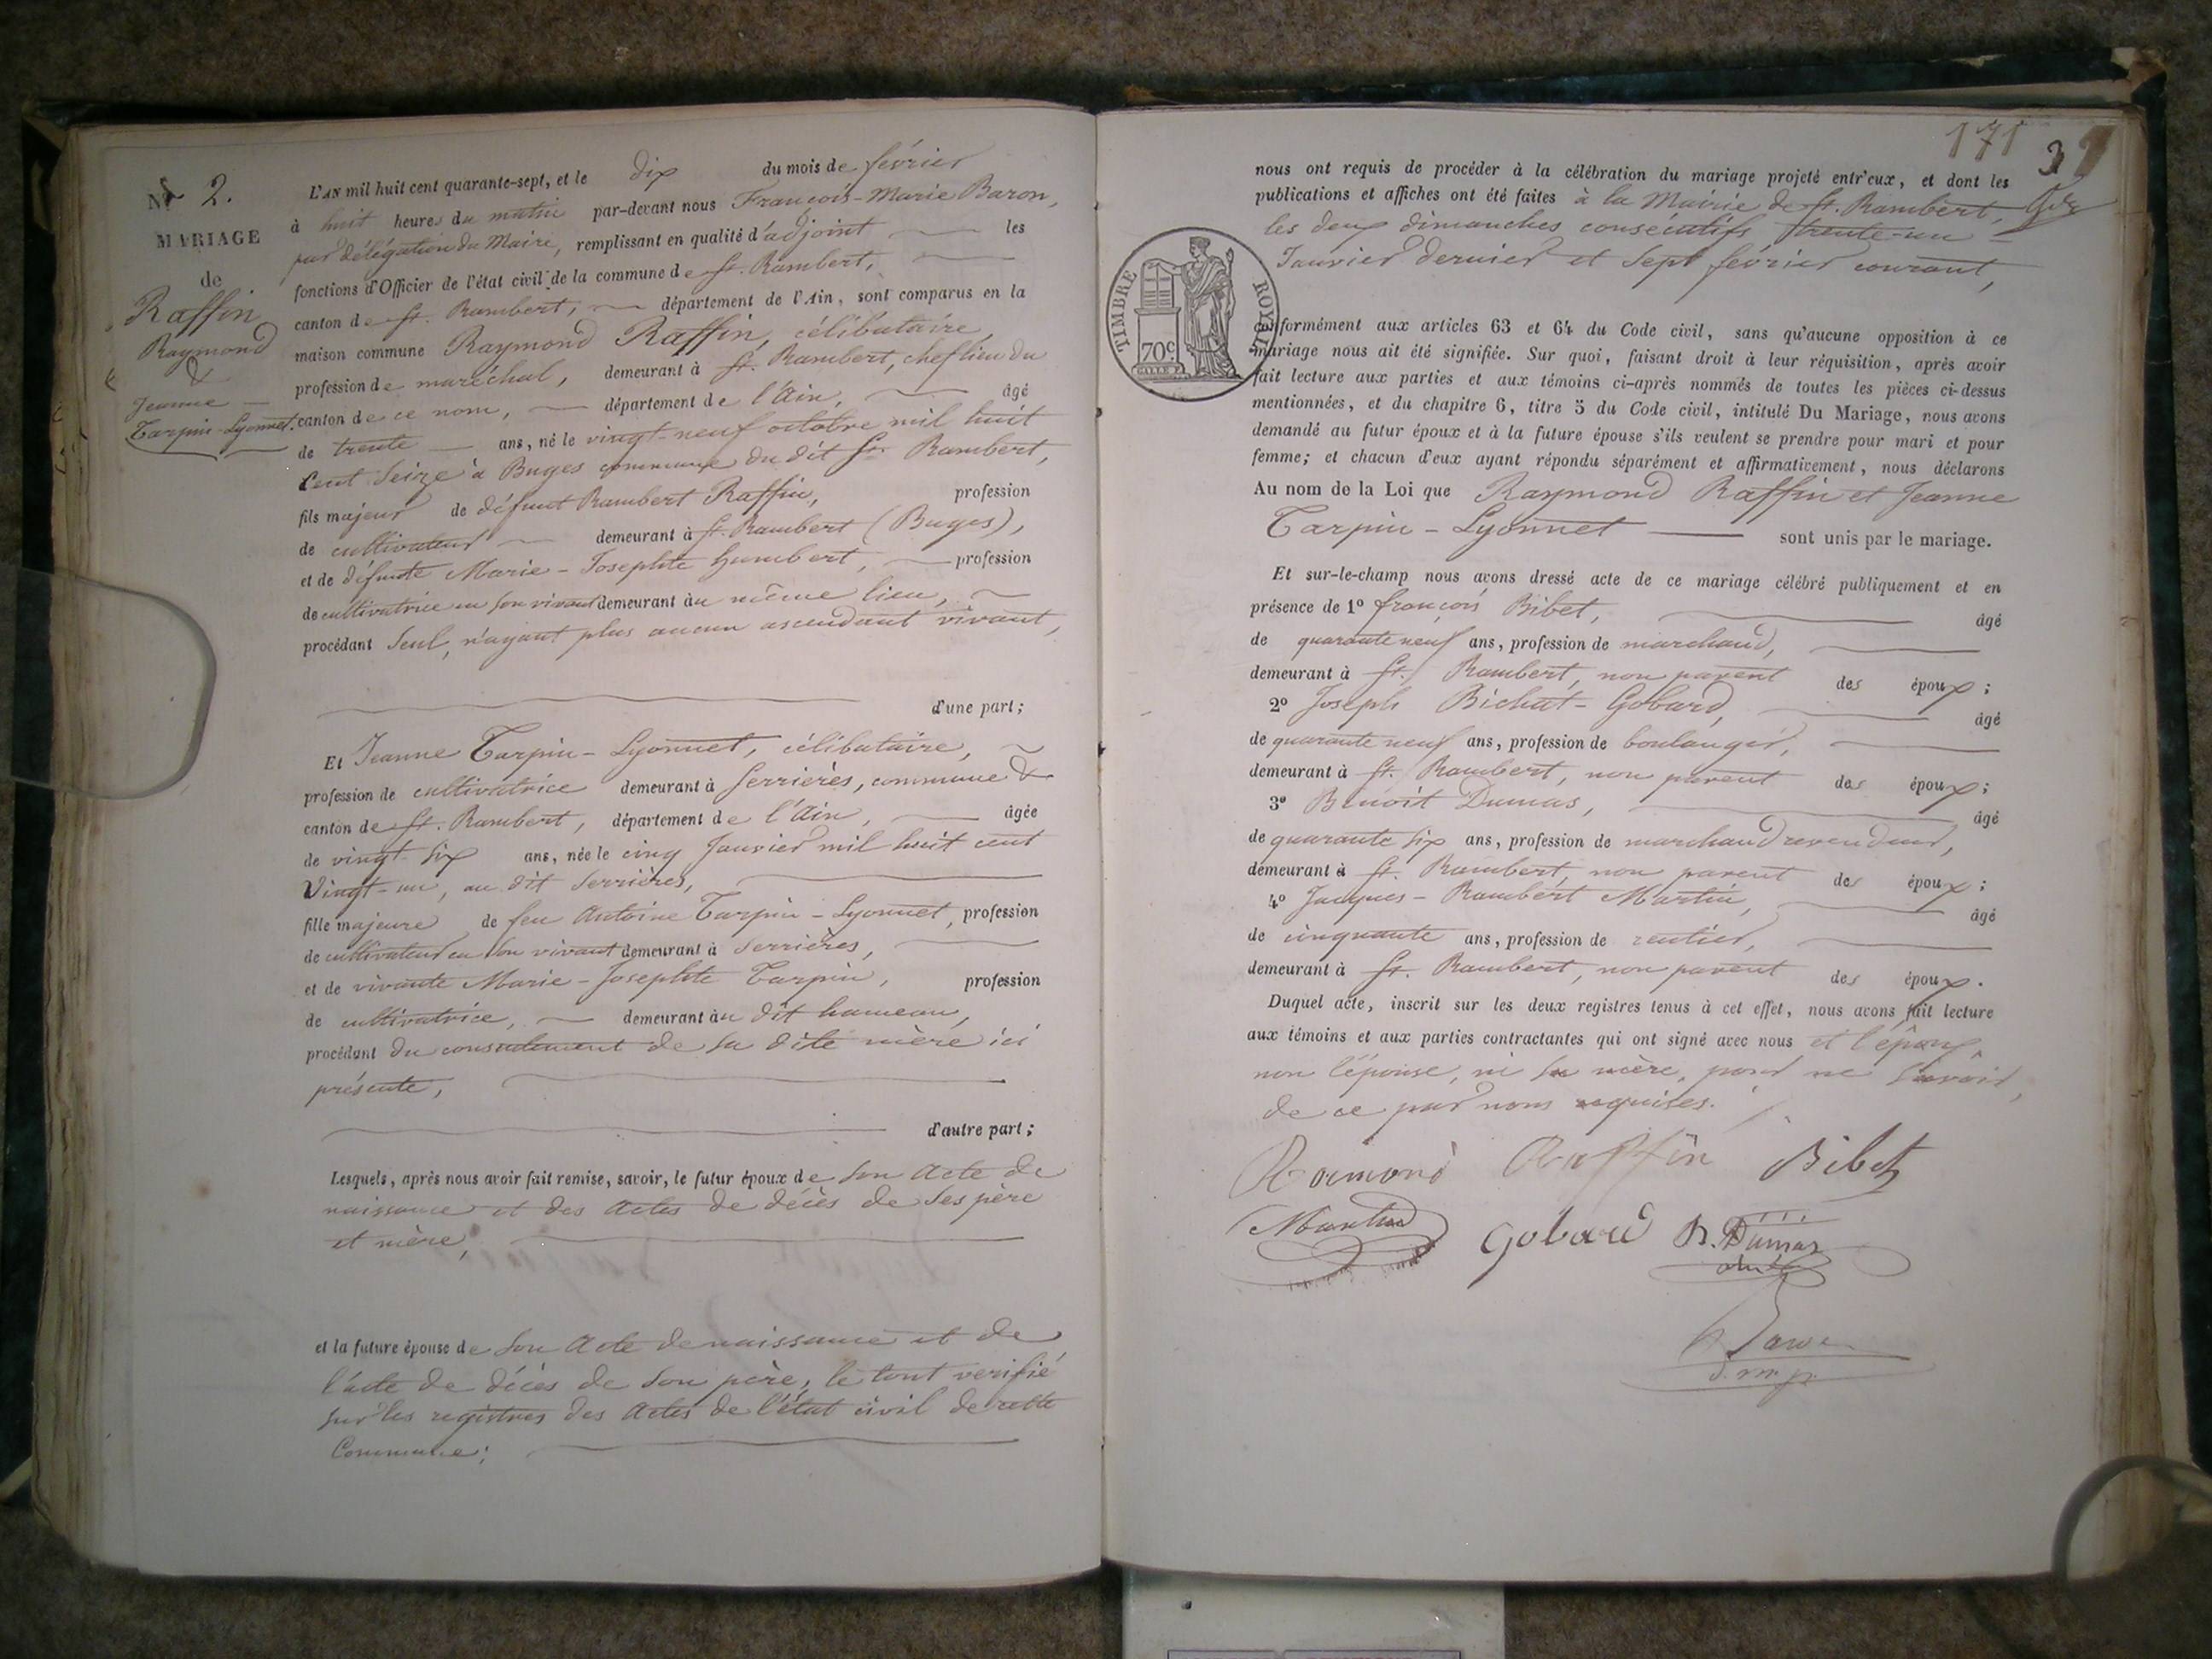 N° 2.
MARIAGE
de
Raffin
Raymond
&
Jeanne
Tarpin-Lyonnet.
L'AN mil huit cent quarante-sept, et le dix du mois de février
à huit heures du matin par-devant nous François-Marie Baron,
par délégation du Maire, remplissant en qualité d'adjoint les
fonctions d'Officier de l'état civil de la commune de St. Rambert,
canton de St. Rambert, département de l'Ain, sont comparus en la
maison commune Raymond Raffin, célibataire,
profession de maréchal, demeurant à St. Rambert, chef lieu du
canton de ce nom, département de l'Ain, âgé
de trente ans, né le vingt-neuf octobre mil huit
Cent Seize à Buges commune du dit St. Rambert,
fils majeur de défunt Rambert Raffin, profession
de cultivateur demeurant à St. Rambert (Buges),
et de défunte Marie-Josephte Humbert, profession
de cultivatrice en son vivant demeurant au même lieu,
procédant Seul, n'ayant plus aucun ascendant vivant,
d'une part;
Et Jeanne Tarpin-Lyonnet, célibataire,
profession de cultivatrice demeurant à Serrières, commune &
canton de St. Rambert, département de l'Ain, âgée
de vingt-six ans, née le cinq Janvier mil huit cent
Vingt-un, au dit Serrières,
fille majeure de feu Antoine Tarpin-Lyonnet, profession
de cultivateur en son vivant demeurant à Serrières,
et de vivante Marie-Josephte Tarpin, profession
de cultivatrice, demeurant au dit hameau,
procédant du consentement de sa dite mère ici
présente,
d'autre part;
Lesquels, après nous avoir fait remise, savoir, le futur époux de son acte de
naissance et des actes de décès de ses père
et mère,
et la future épouse de son acte de naissance et de
l'acte de décès de son père, le tout verifié
sur les registres des actes de l'état civil de cette
Commune;
171
37
nous ont requis de procéder à la célébration du mariage projeté entr'eux, et dont les
publications et affiches ont été faites à la Mairie de St. Rambert,
les deux dimanches consécutifs trente-un
Janvier dernier et Sept février courant,
TIMBRE ROYAL
70c
conformément aux articles 63 et 64 du Code civil, sans qu'aucune opposition à ce
mariage nous ait été signifiée. Sur quoi, faisant droit à leur réquisition, après avoir
fait lecture aux parties et aux témoins ci-après nommés de toutes les pièces ci-dessus
mentionnées, et du chapitre 6, titre 5 du Code civil, intitulé Du Mariage, nous avons
demandé au futur époux et à la future épouse s'ils veulent se prendre pour mari et pour
femme; et chacun d'eux ayant répondu séparément et affirmativement, nous déclarons
Au nom de la Loi que Raymond Raffin et Jeanne
Tarpin-Lyonnet sont unis par le mariage.
Et sur-le-champ nous avons dressé acte de ce mariage célébré publiquement et en
présence de 1° françois Bibet, âgé
de quarante neuf ans, profession de marchand,
demeurant à St. Rambert, non parent des époux;
2° Joseph Bichat-Gobard, âgé
de quarante neuf ans, profession de boulanger,
demeurant à St. Rambert, non parent des époux;
3° Benoit Dumas, âgé
de quarante six ans, profession de marchand revendeur,
demeurant à St. Rambert, non parent des époux;
4° Jacques-Rambert Martin, âgé
de cinquante ans, profession de rentier,
demeurant à St. Rambert, non parent des époux.
Duquel acte, inscrit sur les deux registres tenus à cet effet, nous avons fait lecture
aux témoins et aux parties contractantes qui ont signé avec nous et l'époux,
non l'épouse, ni sa mère, pour ne savoir,
de ce par nous requises.
Rormond Raffin Bibet
Martin Gobard B. Dumas